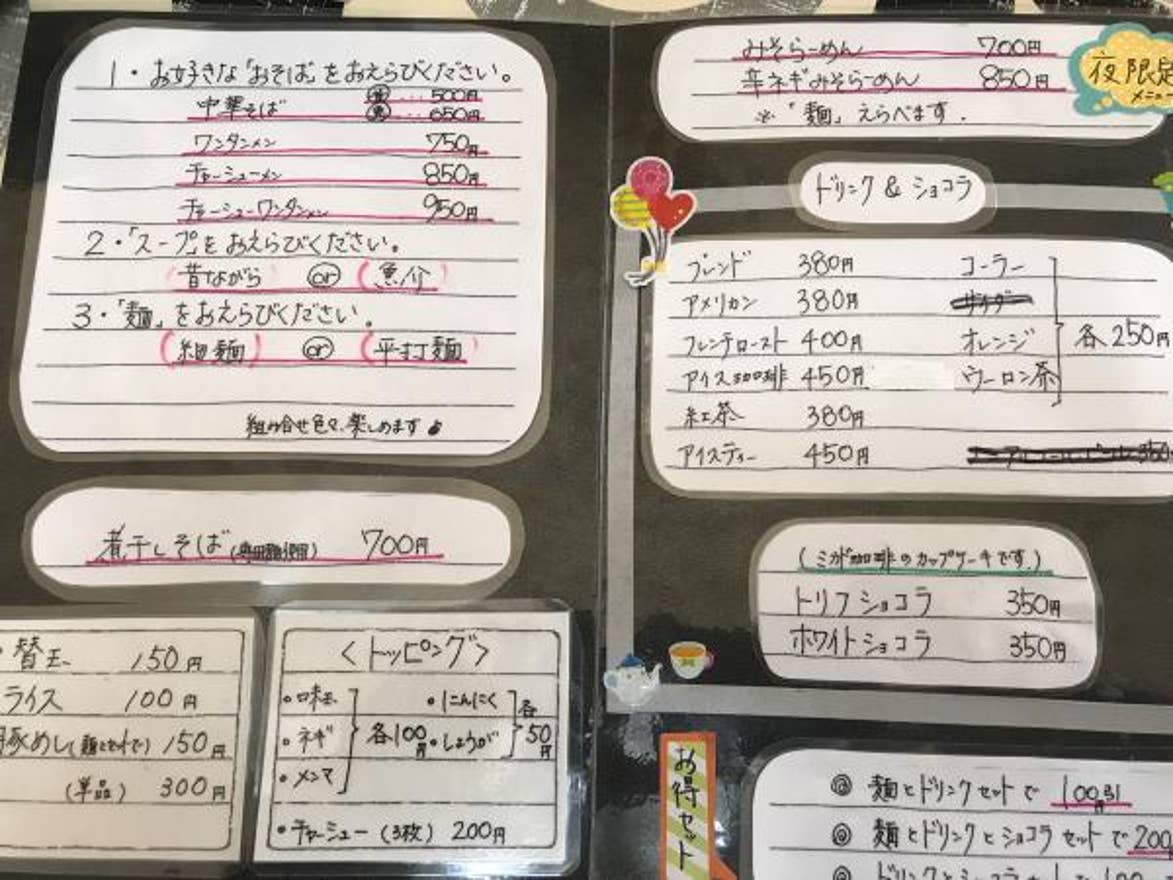 1・お好きな「おそば」をおえらびください。
中華そば ㊥…500円
㊛…650円
ワンタンメン 750円
チャーシューメン 850円
チャーシューワンタンメン 950円
2・「スープ」をおえらびください。
(昔ながら) or (魚介)
3・「麺」をおえらびください。
(細麺) or (平打麺)
組み合せ色々、楽しめます♪
煮干しそば 700円
替玉 150円
ライス 100円
豚めし(麺とセットで) 150円
(単品) 300円
<トッピング>
・味玉
・ネギ
・メンマ
各100円
・にんにく
・しょうが
各50円
・チャーシュー(3枚) 200円
みそらーめん 700円
辛ネギみそらーめん 850円
※「麺」えらべます.
夜限定
メニュー
ドリンク & ショコラ
ブレンド 380円
アメリカン 380円
フレンチロースト 400円
アイス珈琲 450円
紅茶 380円
アイスティー 450円
コーラー
サイダー
オレンジ
ウーロン茶
各250円
(ミカド珈琲のカップケーキです.)
トリフショコラ 350円
ホワイトショコラ 350円
お得セット
◎ 麺とドリンクセットで 100円引
◎ 麺とドリンクとショコラセットで 200